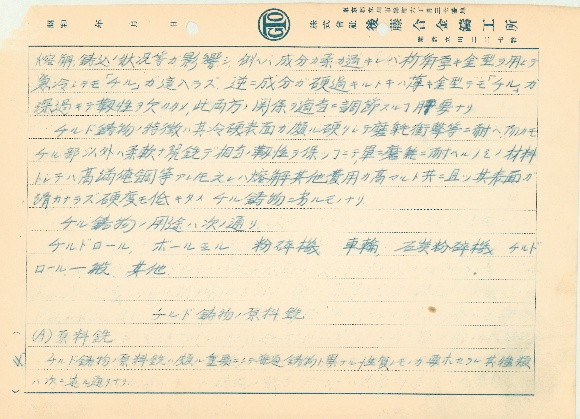 昭和 年 月 日
株式會社 後藤合金鑄工所
熔解鋳込ノ状況等力影響シ 例ヘバ成分カ柔カ過キレハ 相當重キ金型ヲ用ヒテ
急冷シテモ「チル」ガ這入ラズ 逆ニ成分カ硬過キルトキハ薄キ金型デモ「チル」ガ
深過キテ靱性ヲ欠クカラ此両方ノ関係ヲ適当ニ調節スルコト肝要ナリ
チルド鋳物ノ特徴ハ其冷硬表面カ頗ル硬クシテ磨耗衝撃等ニ耐ヘ
チル部以外ハ柔軟ナ 相当ノ靱性ヲ保ツコトデ單ニ磨耗ニ耐ヘルノミノ材料
トシテハ高満俺鋼等アレ 熔解其他費用カ高マルト共ニ且ツ其表面カ
硬度モ低キタメ チル鋳物ニ劣ルモノナリ
チル鋳物ノ用途ハ次ノ通リ
チルドロール、ボールミル 粉砕機 車輪、石炭粉砕機 チルド
ロール一般 其他
チルド鋳物ノ原料銑
(A) 原料銑
チルド鋳物ノ原料銑ハ頗ル重要ニシテ普通鋳物ト異ナル性質ノモノカ要求セラル 其種類
ハ次ニ述ル通リナリ